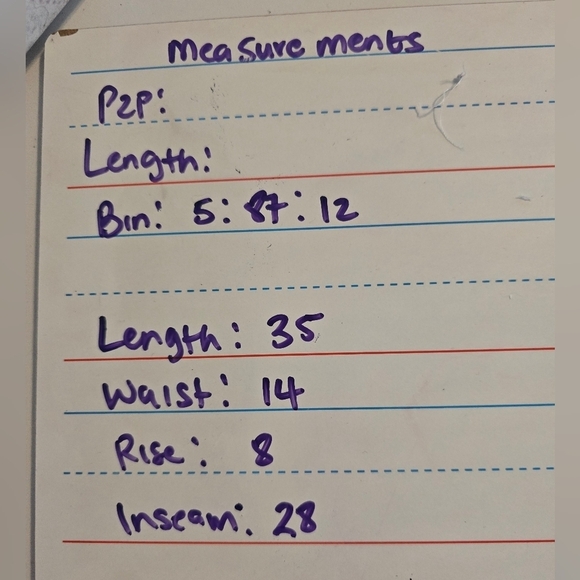 Measurements
P2P:
Length:
Bin: 5: 87: 12
Length: 35
Waist: 14
Rise: 8
Inseam: 28